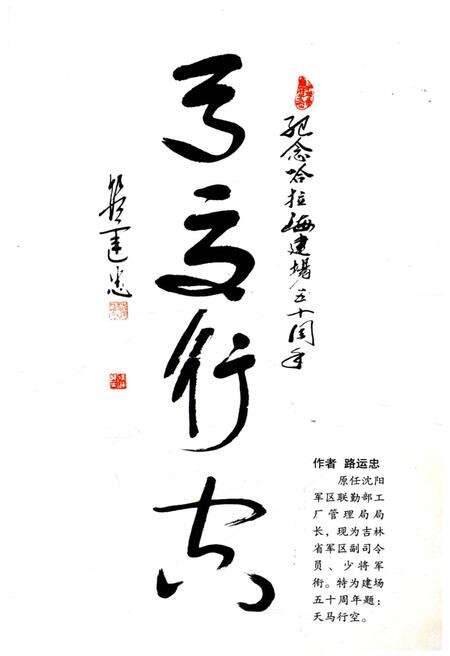 紀念哈拉海建場五十周年
天马行空
路運忠
作者 路运忠
原任沈阳
军区联勤部工
厂管理局局
长，现为吉林
省军区副司令
员、少将军
衔。特为建场
五十周年题：
天马行空。